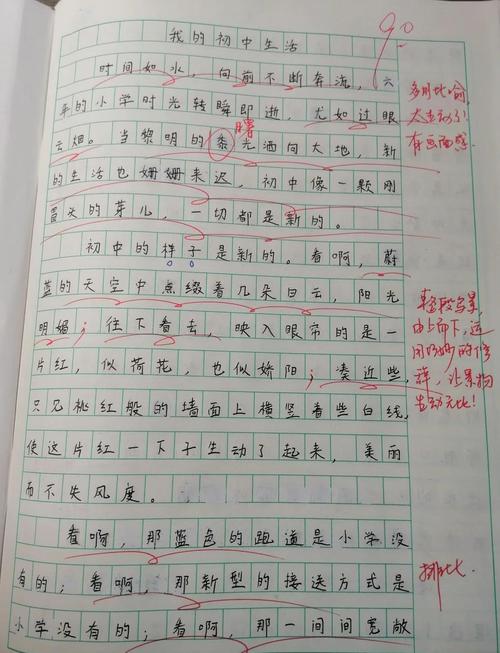 90
我的初中生活
时间如水，向前不断奔流，六
年的小学时光转瞬即逝，尤如过眼
云烟。当黎明的黍光洒向大地，新
曙
的生活也姗姗来迟，初中像一颗刚
冒头的芽儿，一切都是新的。
多用比喻，
太生动了！
有画面感
初中的样子是新的。看啊，蔚
蓝的天空中点缀着几朵白云，阳光
明媚；往下看去，映入眼帘的是一
片红，似荷花，也似娇阳；凑近些，
只见桃红般的墙面上横竖着些白线，
使这片红一下子生动了起来，美丽
而不失风度。
由上而下，运
用巧妙的修
辞，让景物
生动无比！
看啊，那蓝色的跑道是小学没
有的；看啊，那新型的接送方式是
小学没有的；看啊，那一间间宽敞
排比